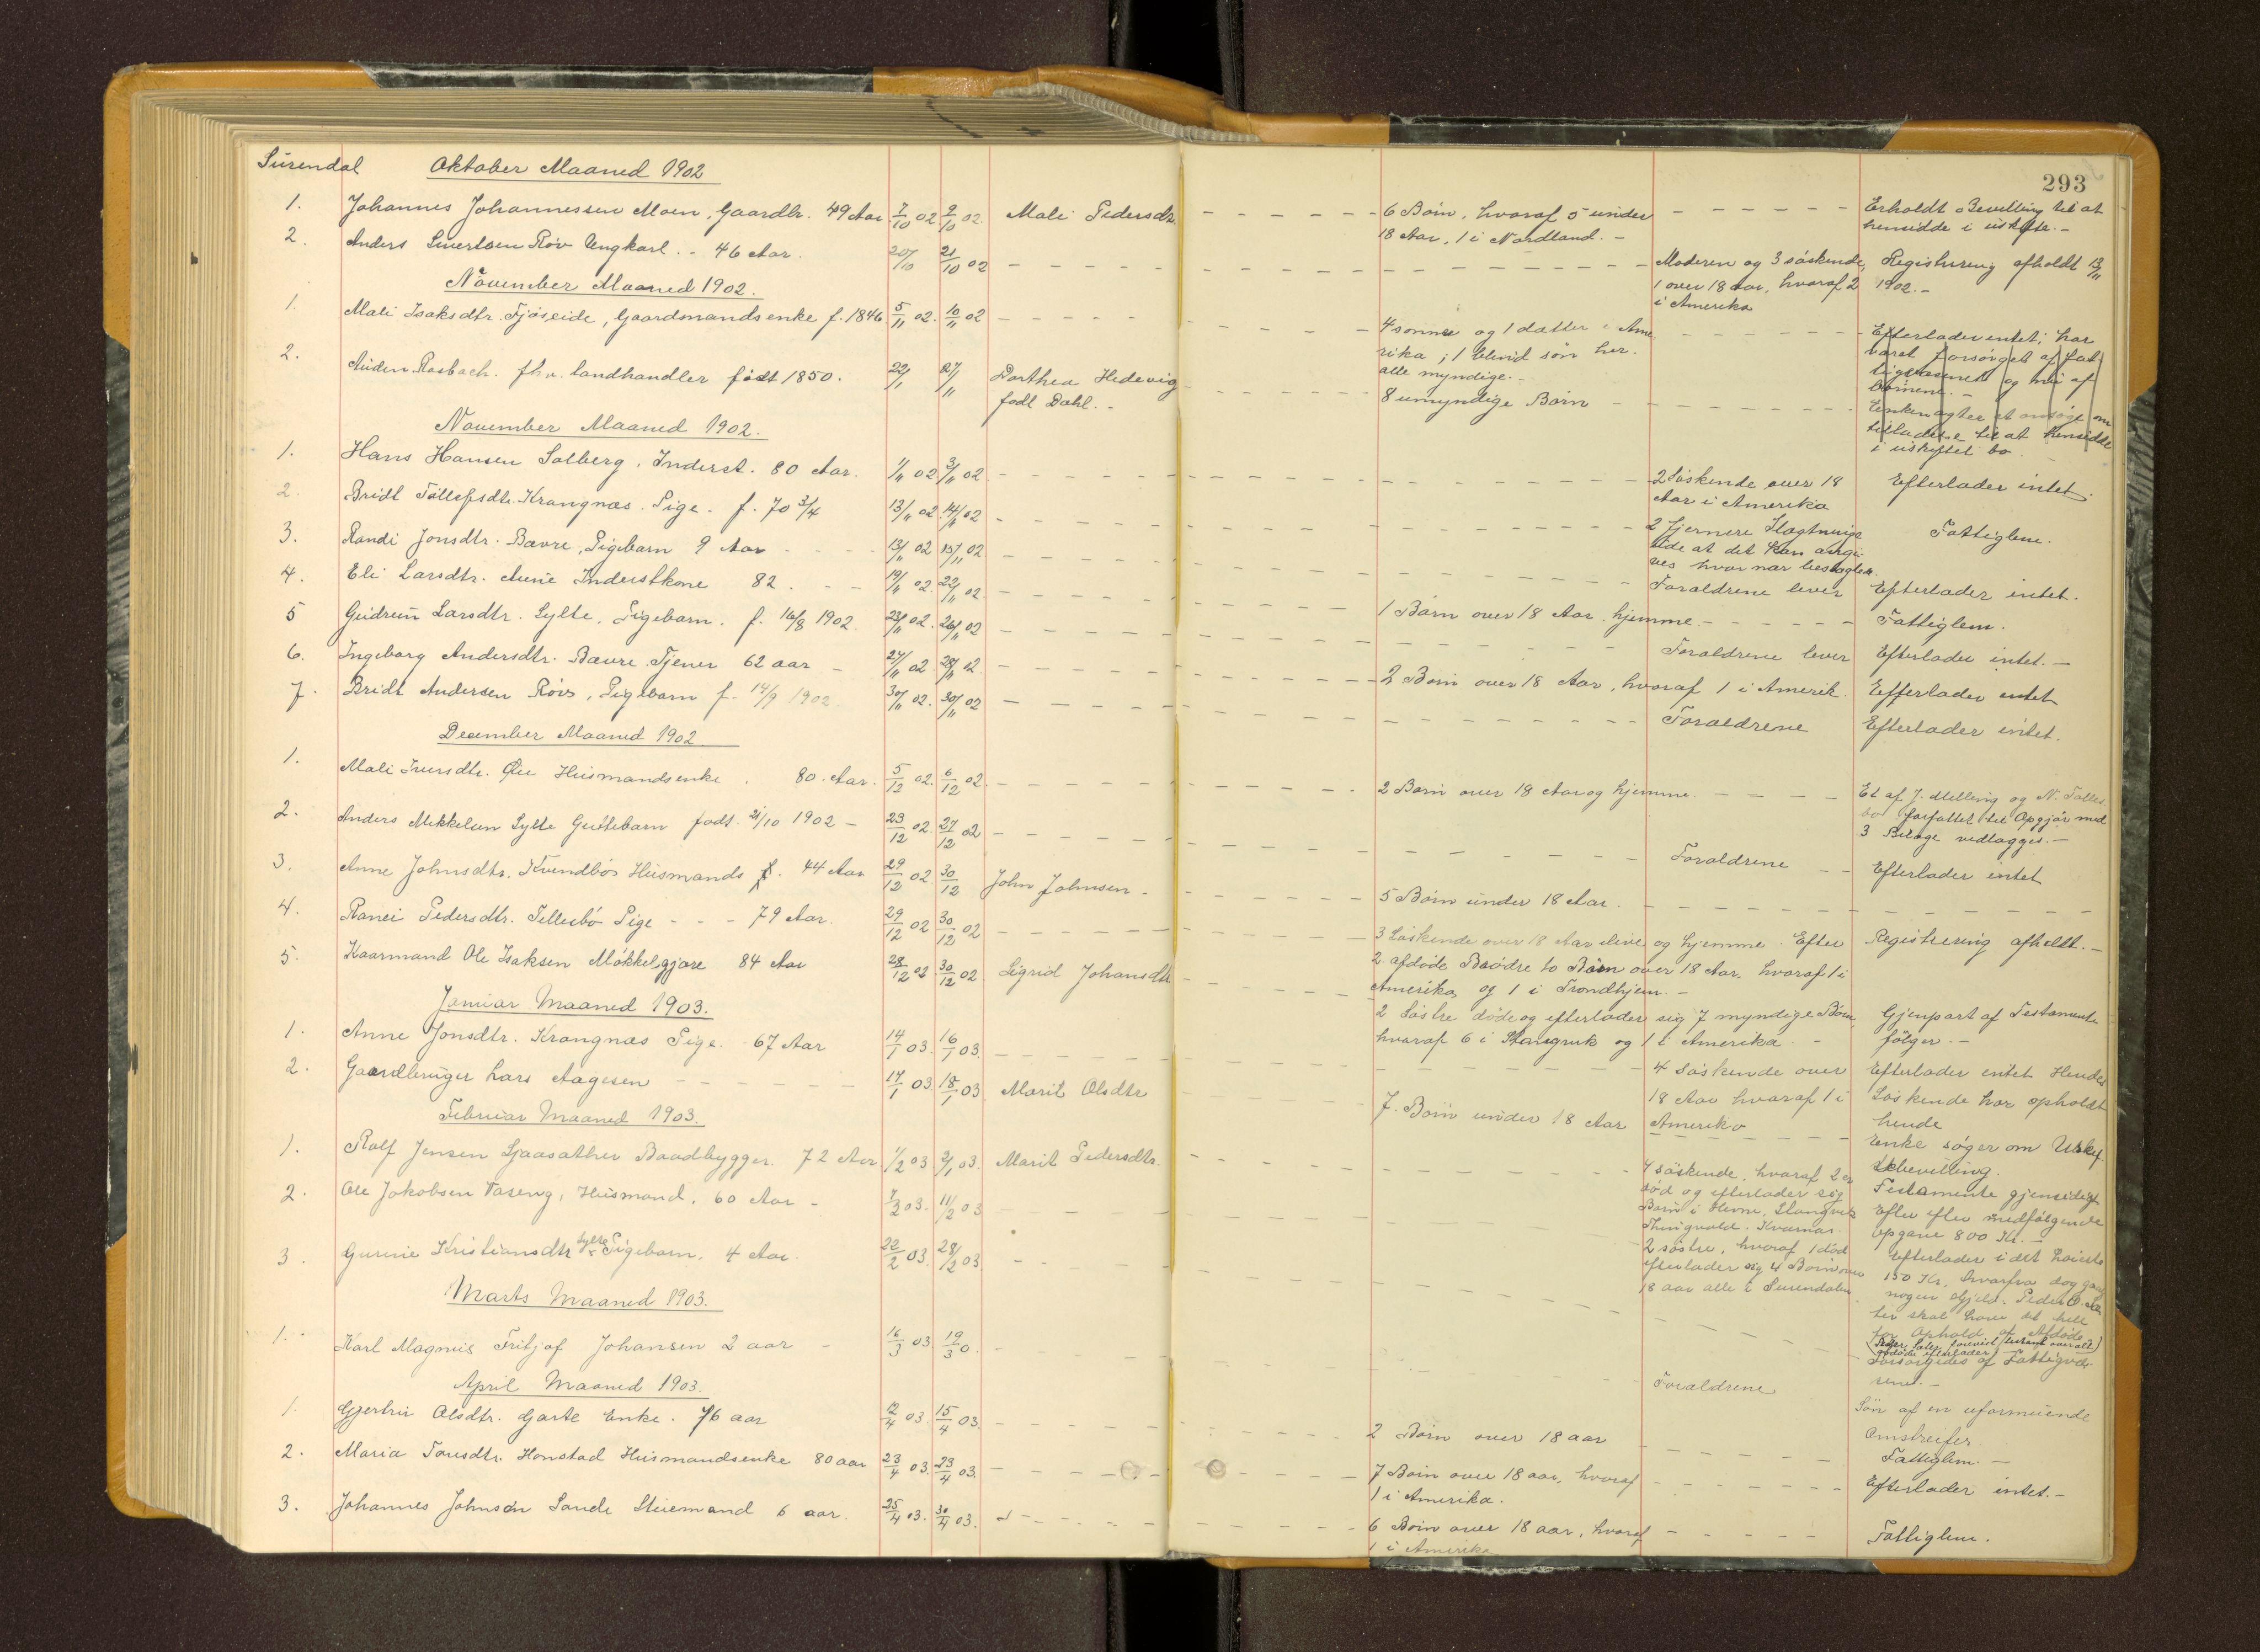 293
Surendal Oktober Maaned 1902
1. Johannes Johannessen Moen, Gaardbr. 49 Aar 7/10 02 9/10 02. Mali Pedersdtr. 6 Børn, hvoraf 5 under Erholdt Bevilling til at
18 Aar, 1 i Nordland. - hensidde i uskifte. -
2. Anders Sivertsen Röv Ungkarl. - 46 Aar. 20/10 21/10 02 Moderen og 3 söskende, Registrering afholdt 13/11
1 over 18 Aar, hvoraf 2 1902. -
i Amerika
November Maaned 1902.
1. Mali Isaksdtr. Fjøseide, Gaardmandsenke f. 1846 5/11 02. 10/11 02 4 sönner og 1 datter i Ame Efterlader intet; har
rika; 1 blind sön her. været forsörget af fat
alle myndige. - tigvæsenet og nu af
börnene. -
2. Auden Rosbach. fhv. landhandler födt 1850. 22/11 27/11 Dorthea Hedevig 8 umyndige Børn Enken agter at ansöge om
födt Dahl. - tilladelse til at hensidde
i uskiftet bo.
November Maaned 1902.
1. Hans Hansen Solberg. Inderst. 80 Aar. 1/11 02 3/11 02 2 Söskende over 18 Efterlader intet.
Aar i Amerika
2. Bridt Tøllefsdtr. Krangnæs. Pige. f. 70 3/4 13/11 02. 14/11 02 2 fjernere Slægtninge Fattiglem.
ude at det kan angi
ves hvor nær beslægtede.
3. Randi Jonsdtr. Bævre, Pigebarn 9 Aar 13/11 02 15/11 02 Forældrene lever Efterlader intet.
4. Eli Larsdtr. Aune Inderstkone 82. 19/11 02. 22/11 02 1 Barn over 18 Aar. hjemme. Fattiglem.
5 Gudrun Larsdtr. Sylte, Pigebarn. f. 16/8 1902. 23/11 02. 26/11 02 Forældrene lever Efterlader intet. -
6. Ingeborg Andersdtr. Bævre. Tjener 62 aar 24/11 02 28/11 02. 2 Börn over 18 Aar, hvoraf 1 i Amerik. Efterlader intet
7. Bridt Andersen Röv, Pigebarn f. 14/9 1902. 30/11 02. 30/11 02 Forældrene Efterlader intet.
December Maaned 1902
1. Mali Iversdtr. Öie Husmandsenke. 80. Aar. 5/12 02. 6/12 02. 2 Børn over 18 Aar og hjemme. Et af J. Melling og N. Telles
bö forfattet til Opgjör med
3 Bilage vedlægges. -
2. Anders Mikkelsen Sylte Guttebarn födt. 21/10 1902 - 23/12 02. 27/12 02 Forældrene Efterlader intet
3. Anne Johnsdtr. Kvendbö Husmands k. 44 Aar 29/12 02. 30/12 John Johnsen - 5 Børn under 18 Aar.
4. Ranei Pedersdtr. Tellesbö Pige - - - 79 Aar. 29/12 02 30/12 02 3 Söskende over 18 Aar ilive og hjemme. Efter Registrering afholdt. -
2 afdöde Brödre to Børn over 18 Aar, hvoraf 1 i
Amerika, og 1 i Trondhjem. -
5. Kaarmand Ole Isaksen Mökkelgjære 84 Aar 28/12 02 30/12 02 Sigrid Johansdtr 2 Söstre døde og efterlader sig 7 myndige Børn, Gjenpart af Testamente
hvoraf 6 i Stangvik og 1 i Amerika. - fölger. -
Januar Maaned 1903.
1. Anne Jonsdtr. Krangnæs Pige. - 67 Aar 14/1 03. 16/1 03. 4 Söskende over Efterlader intet Hendes
18 Aar hvoraf 1 i Söskende har opholdt
Amerika hende
2. Gaardbruger Lars Aagesen 14/1 03 18/1 03 Marit Olsdtr 7. Børn under 18 Aar Enke söger om Uskif
tebevilling.
Februar Maaned 1903.
1. Rolf Jensen Sjaasæther Baadbygger. 72 Aar 1/2 03 Marit Pedersdtr. 4 söskende, hvoraf 2 er Testamente gjensidigt
död og efterlader sig Efter efter medfölgende
Børn i Hevne, Stangvik opgave 800 Kr. -
Thingvold. Kvernæs.
2. Ole Jakobsen Vaseng, Husmand. 60 Aar - 7/2 03. 11/2 03 2 söstre, hvoraf 1 död Efterlader i det höieste
efterlader sig 4 Børn over 150 Kr., hvorfra dog gaar
18 aar alle i Surendalen nogen Gjeld. Peder O. Sæ
ter skal have det hele
for Ophold af Afdöde
3. Gurine Kristiansdtr Sylte Pigebarn. 4 Aar. 22/2 03. 28/2 03 Forsörgedes af Fattigvæ
senet. -
Marts Maaned 1903.
1. Karl Magnus Fritjof Johansen 2 aar - 16/3 03 19/3 0. Forældrene Sön af en uformuende
Omstreifer.
April Maaned 1903.
1. Gjertrü Olsdtr. Garte Enke. 76 aar 12/4 03. 15/4 03. 2 Børn over 18 aar Fattiglem. -
2. Maria Tousdtr. Honstad Husmandsenke 80 aar 23/4 03. 23/4 03. 7 Børn over 18 aar, hvoraf Efterlader intet. -
1 i Amerika.
3. Johannes Johnsen Sande Stuemand 6 aar. 25/4 03. 30/4 03. 6 Børn over 18 aar, hvoraf Fattiglem.
1 i Amerika